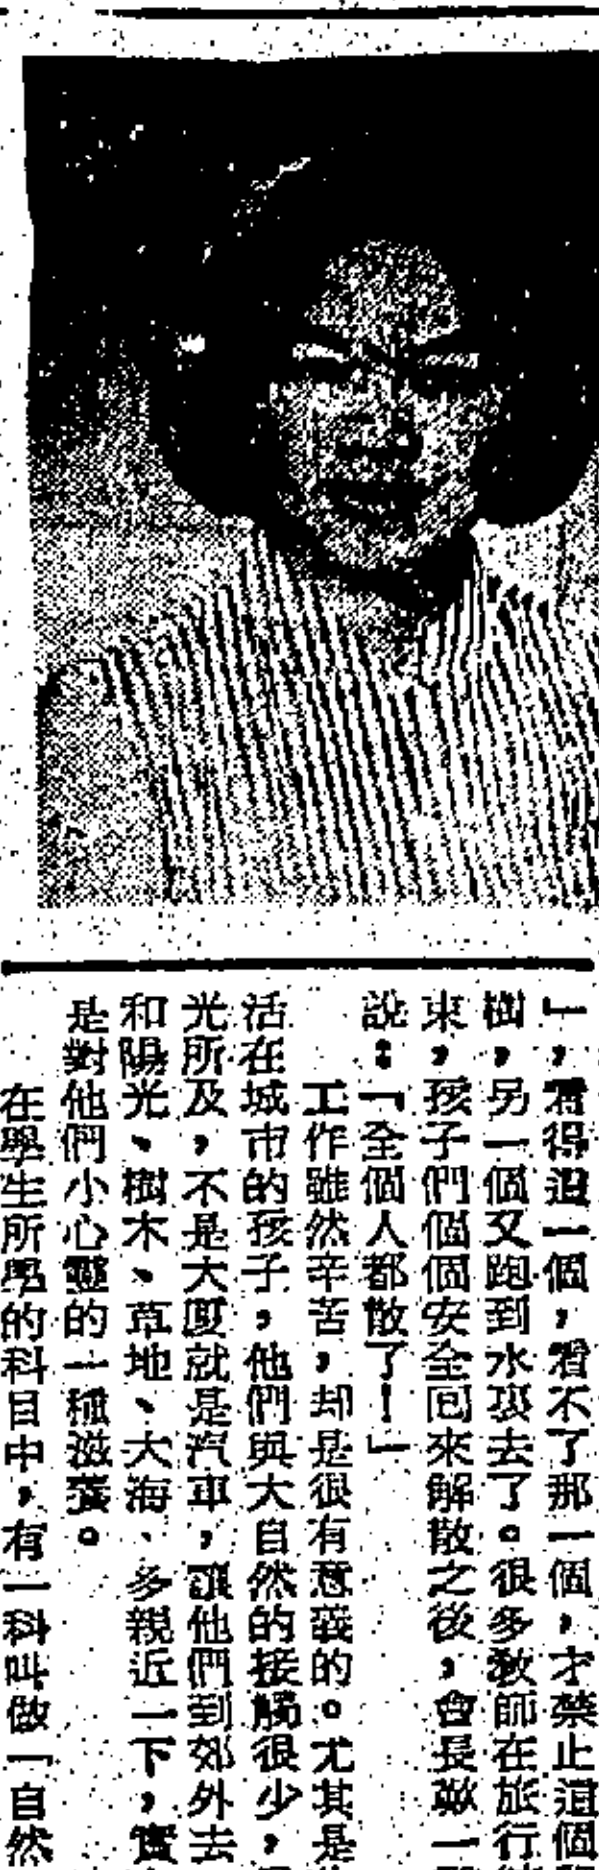 」，看得這一個，看不了那一個，才禁止這個
樹，另一個又跑到水裏去了。很多教師在旅行
束，孩子們個個安全回來解散之後，會長歎一
說：「全個人都散了！」
工作雖然辛苦，却是很有意義的。尤其是
活在城市的孩子，他們與大自然的接觸很少，
光所及，不是大廈就是汽車，讓他們到郊外去
和陽光、樹木、草地、大海、多親近一下，實
是對他們小心靈的一種滋養。
在學生所學的科目中，有一科叫做「自然